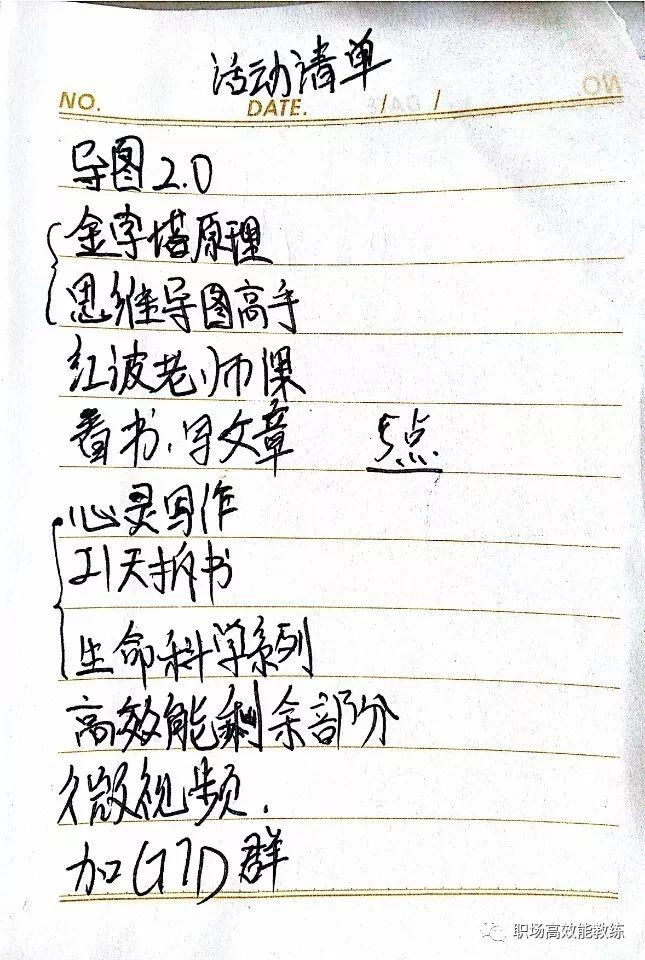 活动清单
NO. DATE. / /
导图2.0
金字塔原理
思维导图高手
红波老师课
看书、写文章 5点
心灵写作
21天拆书
生命科学系列
高效能剩余部分
微视频.
加GTD群
职场高效能教练